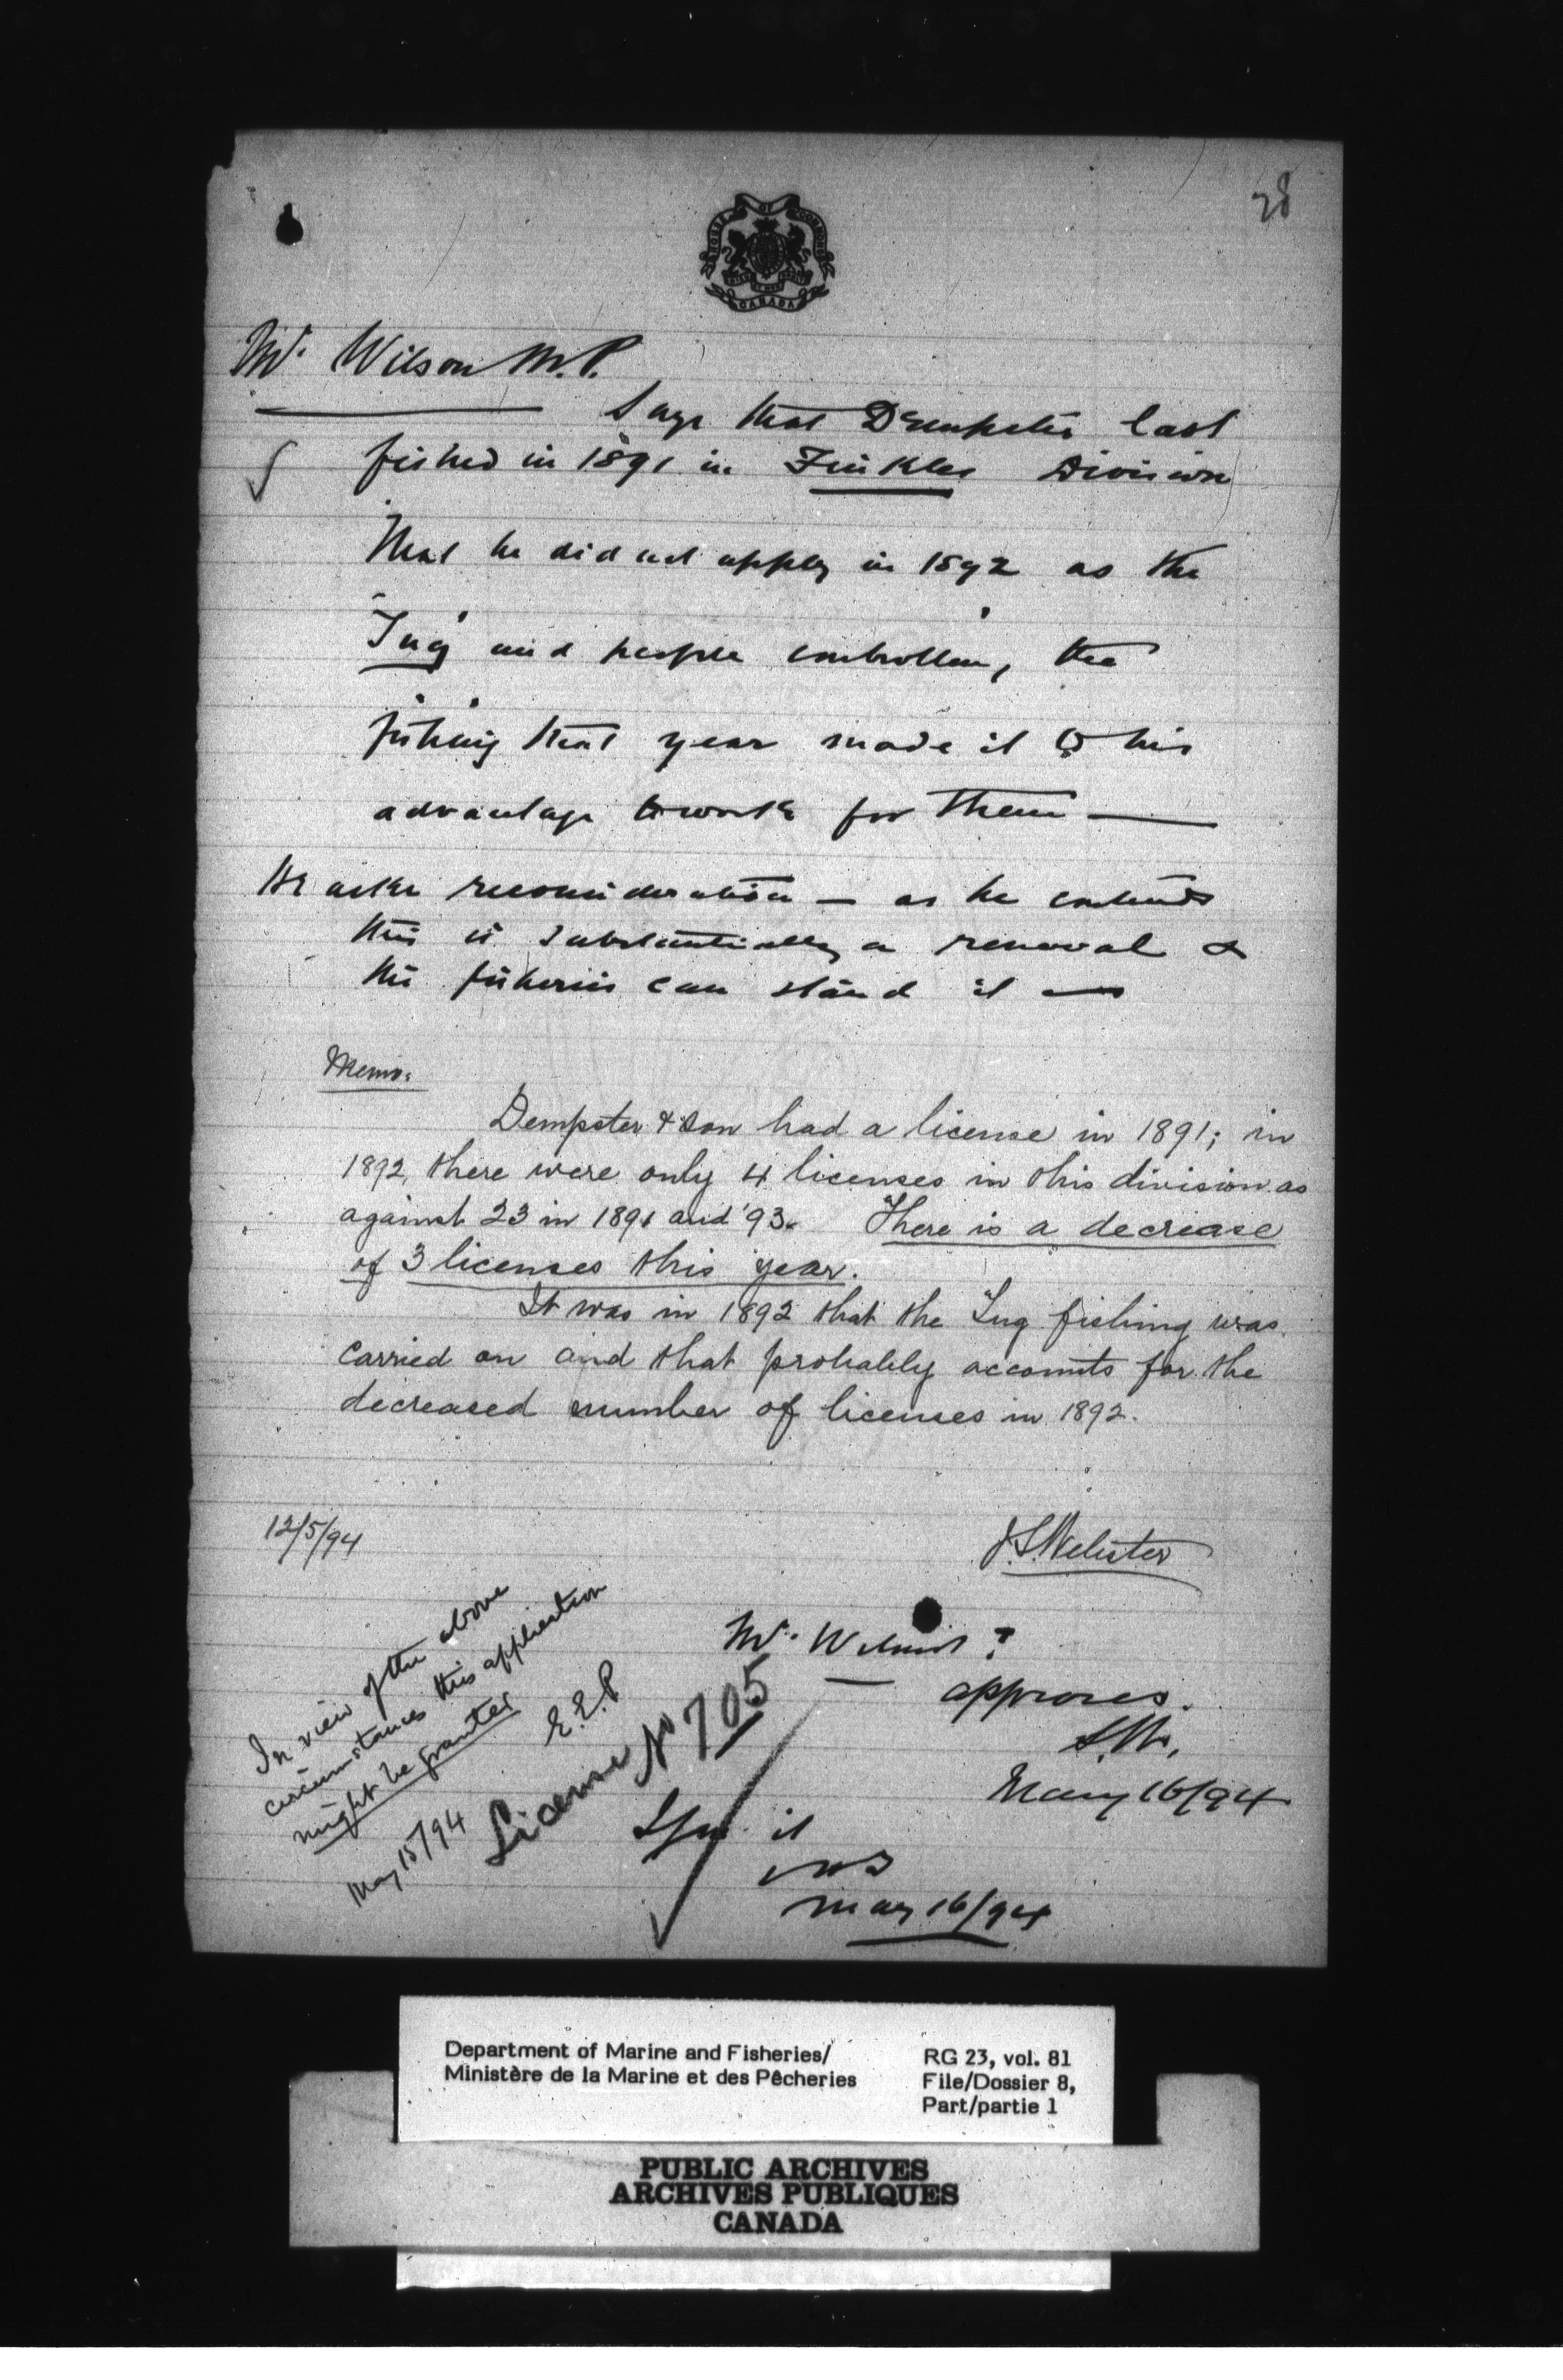 28
HOUSE OF COMMONS
CANADA
Mr. Wilson M.P.
Says that Dempster last
fished in 1891 in Finkles Division
That he did not apply in 1892 as the
"Tug" and people controlling the
fishing that year made it to his
advantage to work for them —
He asks reconsideration — as he contends
this is substantially a renewal &
the fisheries can stand it —
Memo.
Dempster & Son had a license in 1891; in
1892, there were only 4 licenses in this division as
against 23 in 1891 and '93. There is a decrease
of 3 licenses this year.
It was in 1892 that the Tug fishing was
carried on and that probably accounts for the
decreased number of licenses in 1892.
12/5/94
J.S. Webster
In view of the above
circumstances this application
might be granted
E.E.P
May 15/94
License No 705
Mr. Wilmot?
approves.
S.W.
May 16/94
it
May 16/94
Department of Marine and Fisheries/
Ministère de la Marine et des Pêcheries
RG 23, vol. 81
File/Dossier 8,
Part/partie 1
PUBLIC ARCHIVES
ARCHIVES PUBLIQUES
CANADA